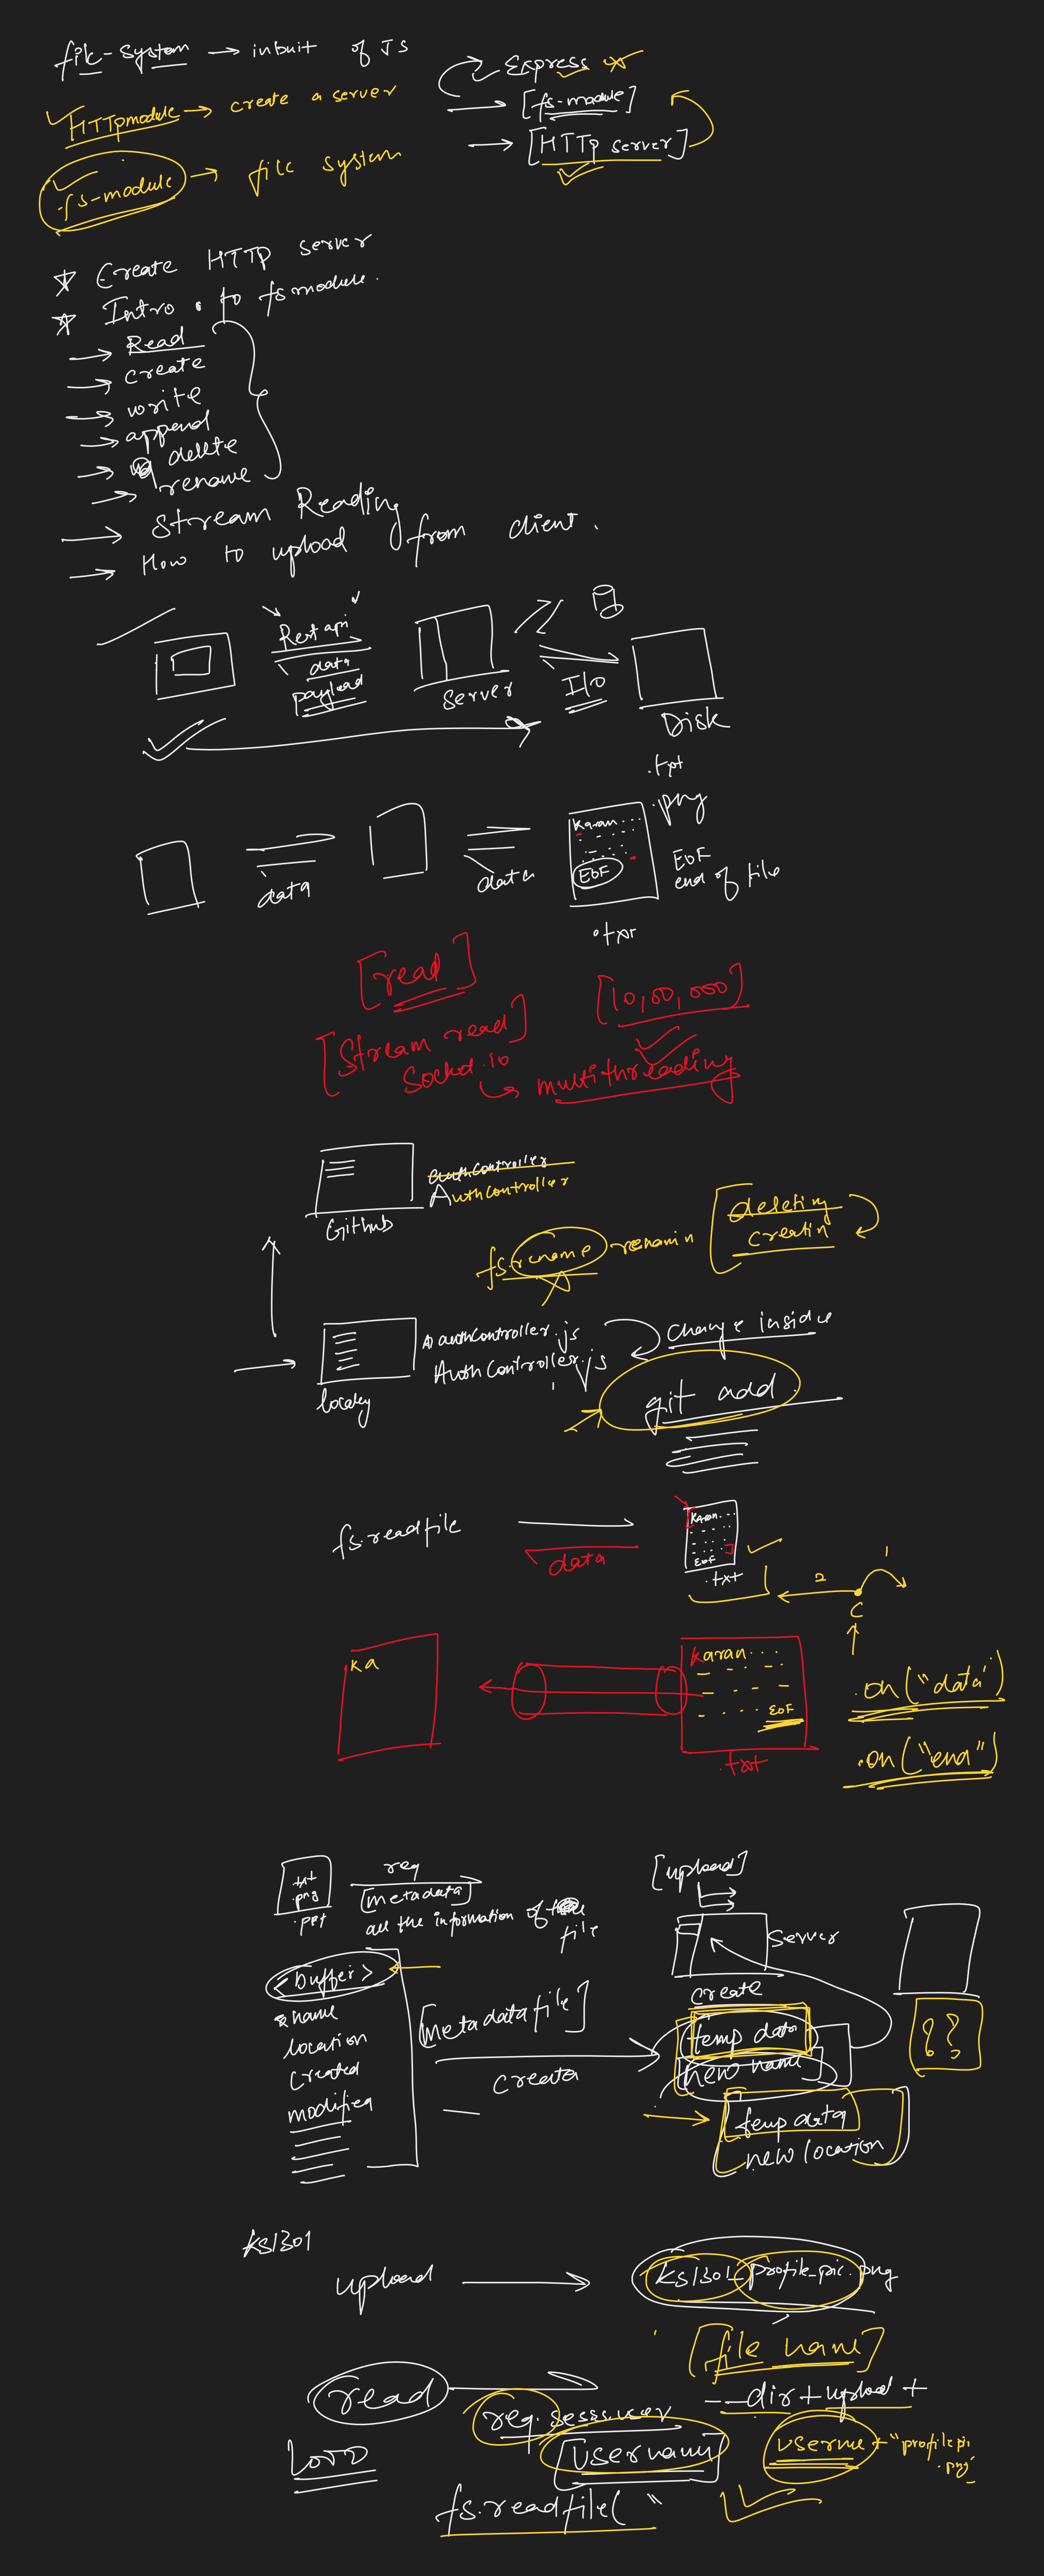 file-system → inbuit of JS
HTTpmodule → create a server
fs-module → file system
Express
→ [fs-module]
→ [HTTp server]
* Create HTTP server
* Intro. to fsmodule.
→ Read
→ create
→ write
→ append
→ delete
→ rename
→ Stream Reading
→ How to upload from client.
Rest api
data
payload
Server
I/o
Disk
.txt
.png
data
data
Karan...
EOF
EOF
end of file
.txt
[read]
[Stream read]
[10,00,000]
Socket.io
→ multithreading
authController
AuthController
Github
fs.rename
renamin
deleting
creatin
authController.js
AuthController.js
change inside
locally
git add.
fs.readfile
data
Karan...
EOF
.txt
1
2
C
Ka
Karan...
EOF
.txt
.on("data")
.on("end")
.txt
.png
.ppt
req
[metadata]
all the information of the
file
[upload]
Server
<buffer>
name
location
created
modified
[metadatafile]
creata
create
temp data
new name
temp data
new location
??
KS1301
upload →
KS1301_profile_pic.png
[file name]
read
req.sesss.user
[username]
__dir + upload +
userme + "profilepi
.png"
fs.readfile( "